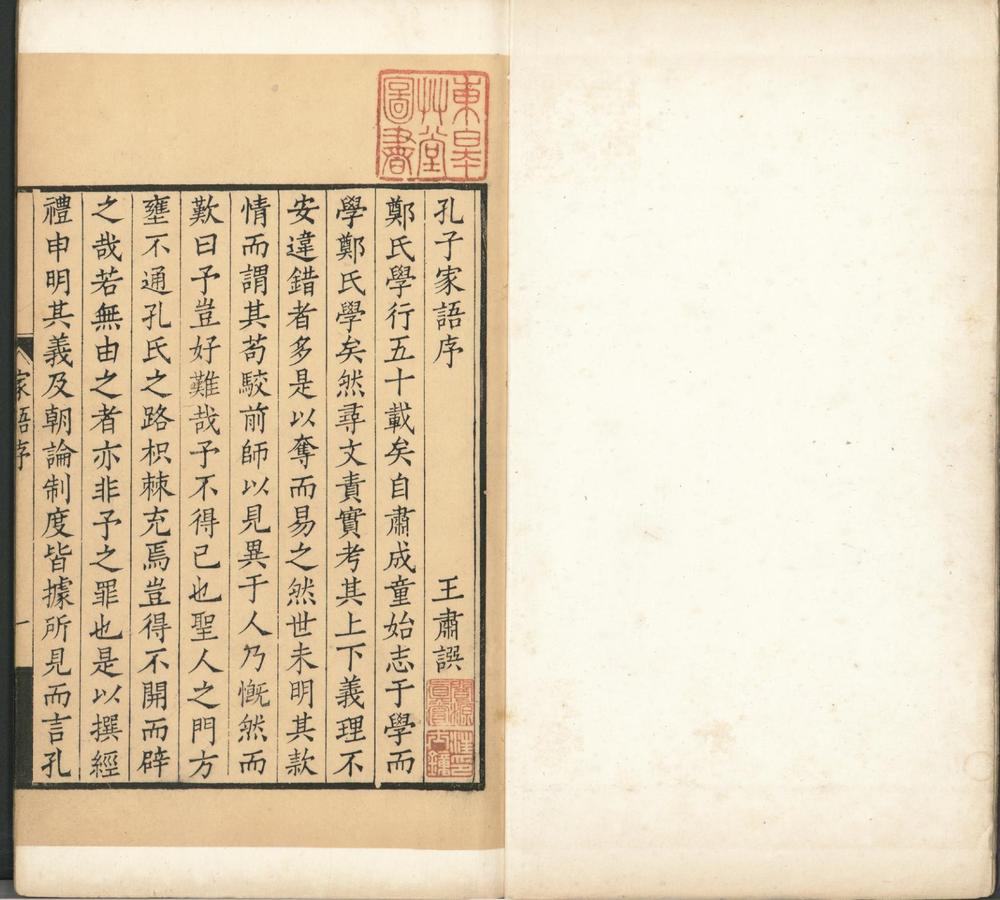 東皋
艸堂
圖書
孔子家語序
王肅譔
閬源
真賞
汪印
士鐘
鄭氏學行五十載矣自肅成童始志于學而
學鄭氏學矣然尋文責實考其上下義理不
安違錯者多是以奪而易之然世未明其款
情而謂其苟駮前師以見異于人乃慨然而
歎曰予豈好難哉予不得已也聖人之門方
壅不通孔氏之路枳棘充焉豈得不開而辟
之哉若無由之者亦非予之罪也是以撰經
禮申明其義及朝論制度皆據所見而言孔
家語序
一